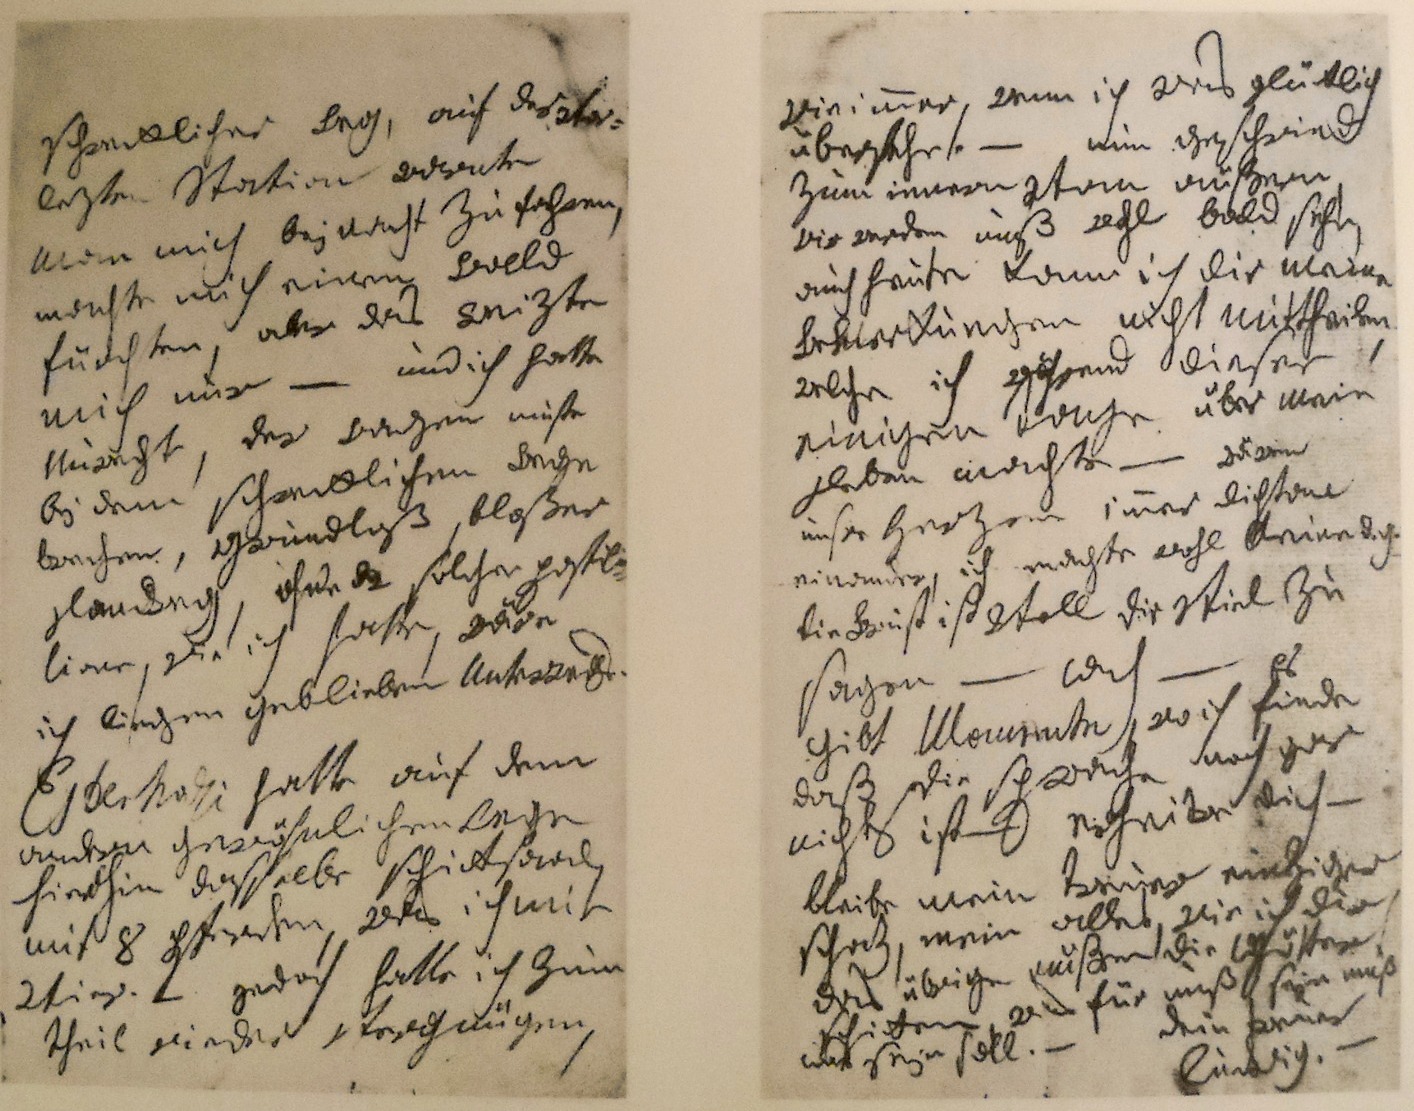 schrecklicher Weg, auf der vor=
lezten Station warnte
man mich bej nacht zu fahren,
machte mich einen Wald
fürchten, aber das Reizte
mich nur — und ich hatte
Unrecht, der wagen muste
bej dem schrecklichen Wege
brechen, grundloß, bloßer
Landweg, ohne solche postil=
lione, wie ich hatte, wäre
ich liegen geblieben Unterwegs.
Esterhazi hatte auf dem
andern gewöhnlichen Wege
hirhin dasselbe schicksaal,
mit 8 pferden, was ich mit
vier. — jedoch hatte ich zum
theil wieder vergnügen,
wie immer, wenn ich was glücklich
überstehe. — nun geschwind
zum innern vom aüßern,
wir werden unß wohl bald sehn,
auch heute kann ich dir meine
Bemerkungen nicht mittheilen,
welche ich während dieser
einigen tage über mein
Leben machte — wären
unsre Herzen immer dicht an
einander, ich machte wohl keine d.g.
die Brust ist voll dir viel zu
sagen — ach — es
gibt Momente, wo ich finde
daß die sprache noch gar
nichts ist — erheitre dich —
bleibe mein treuer einziger
schaz, mein alles, wie ich dir
das übrige müßen die Götter
schicken, was für unß sein muß
und sejn soll. — dein treuer
ludwig. —